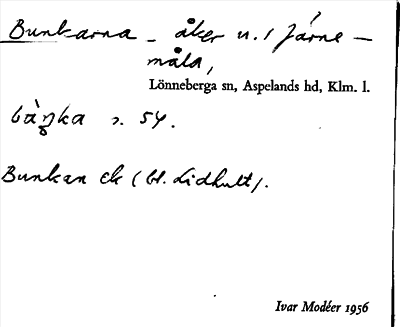 Bunkarna – åker u. / Järne–
måla,
Lönneberga sn, Aspelands hd, Klm. l.
s. 54.
Bunkan ek (bl. Lidhult).
Ivar Modéer 1956